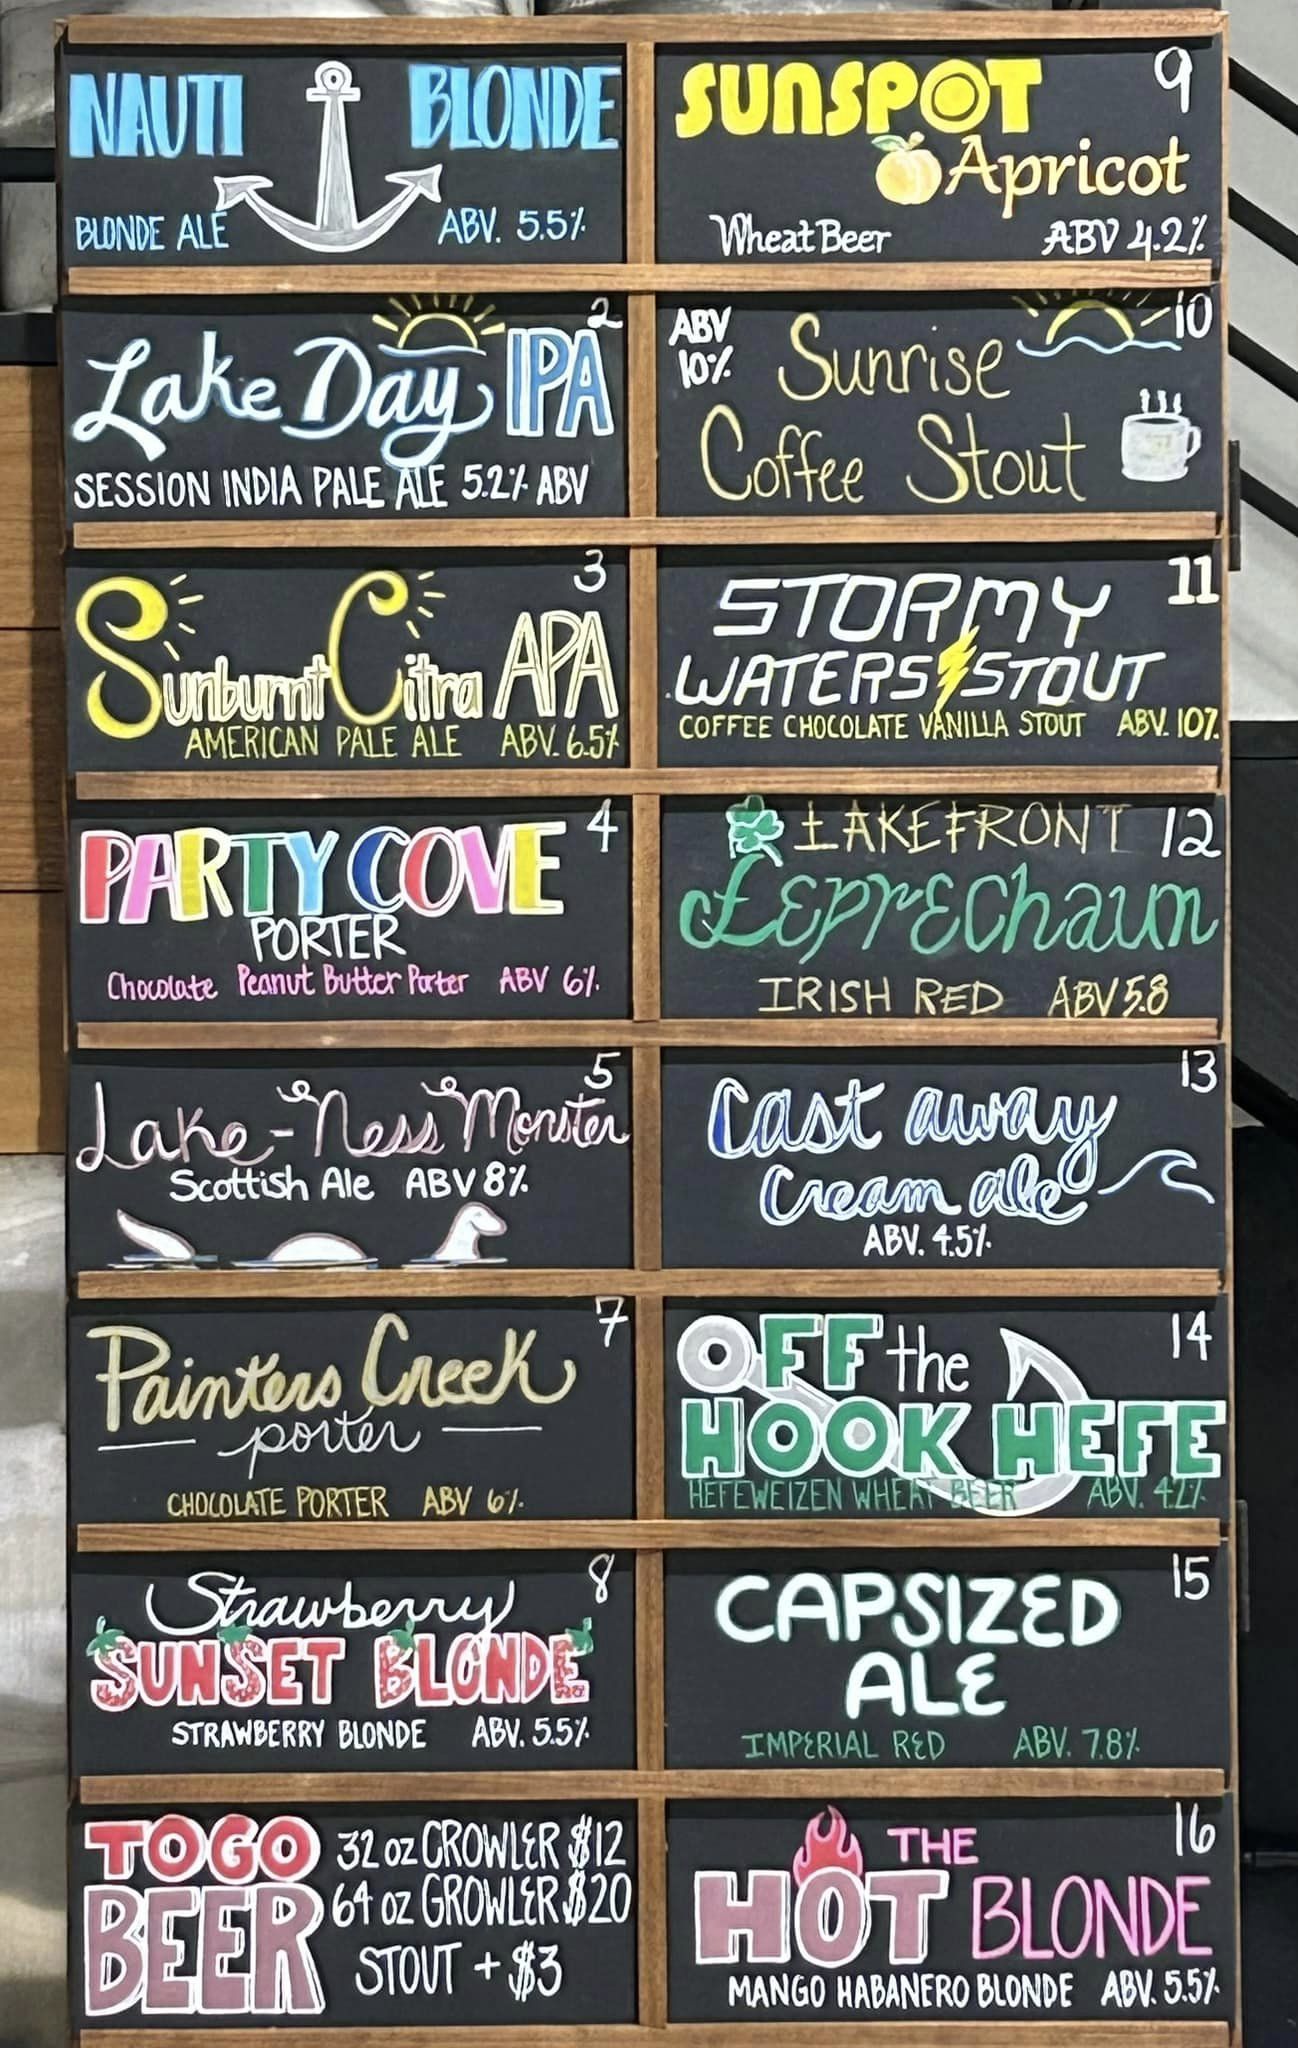 NAUTI BLONDE
BLONDE ALE ABV. 5.5%
2
Lake Day IPA
SESSION INDIA PALE ALE 5.2% ABV
3
Sunburnt Citra APA
AMERICAN PALE ALE ABV. 6.5%
4
PARTY COVE
PORTER
Chocolate Peanut Butter Porter ABV 6%
5
Lake-Ness Monster
Scottish Ale ABV 8%
7
Painters Creek
porter
CHOCOLATE PORTER ABV 6%
8
Strawberry
SUNSET BLONDE
STRAWBERRY BLONDE ABV. 5.5%
TOGO
BEER
32 oz CROWLER $12
64 oz GROWLER $20
STOUT + $3
9
SUNSPOT
Apricot
Wheat Beer ABV 4.2%
10
ABV
10%
Sunrise
Coffee Stout
11
STORMY
WATERS STOUT
COFFEE CHOCOLATE VANILLA STOUT ABV. 10%
12
LAKEFRONT
Leprechaun
IRISH RED ABV 5.8
13
Cast away
Cream ale
ABV. 4.5%
14
OFF the
HOOK HEFE
HEFEWEIZEN WHEAT BEER ABV. 4.2%
15
CAPSIZED
ALE
IMPERIAL RED ABV. 7.8%
16
THE
HOT BLONDE
MANGO HABANERO BLONDE ABV. 5.5%